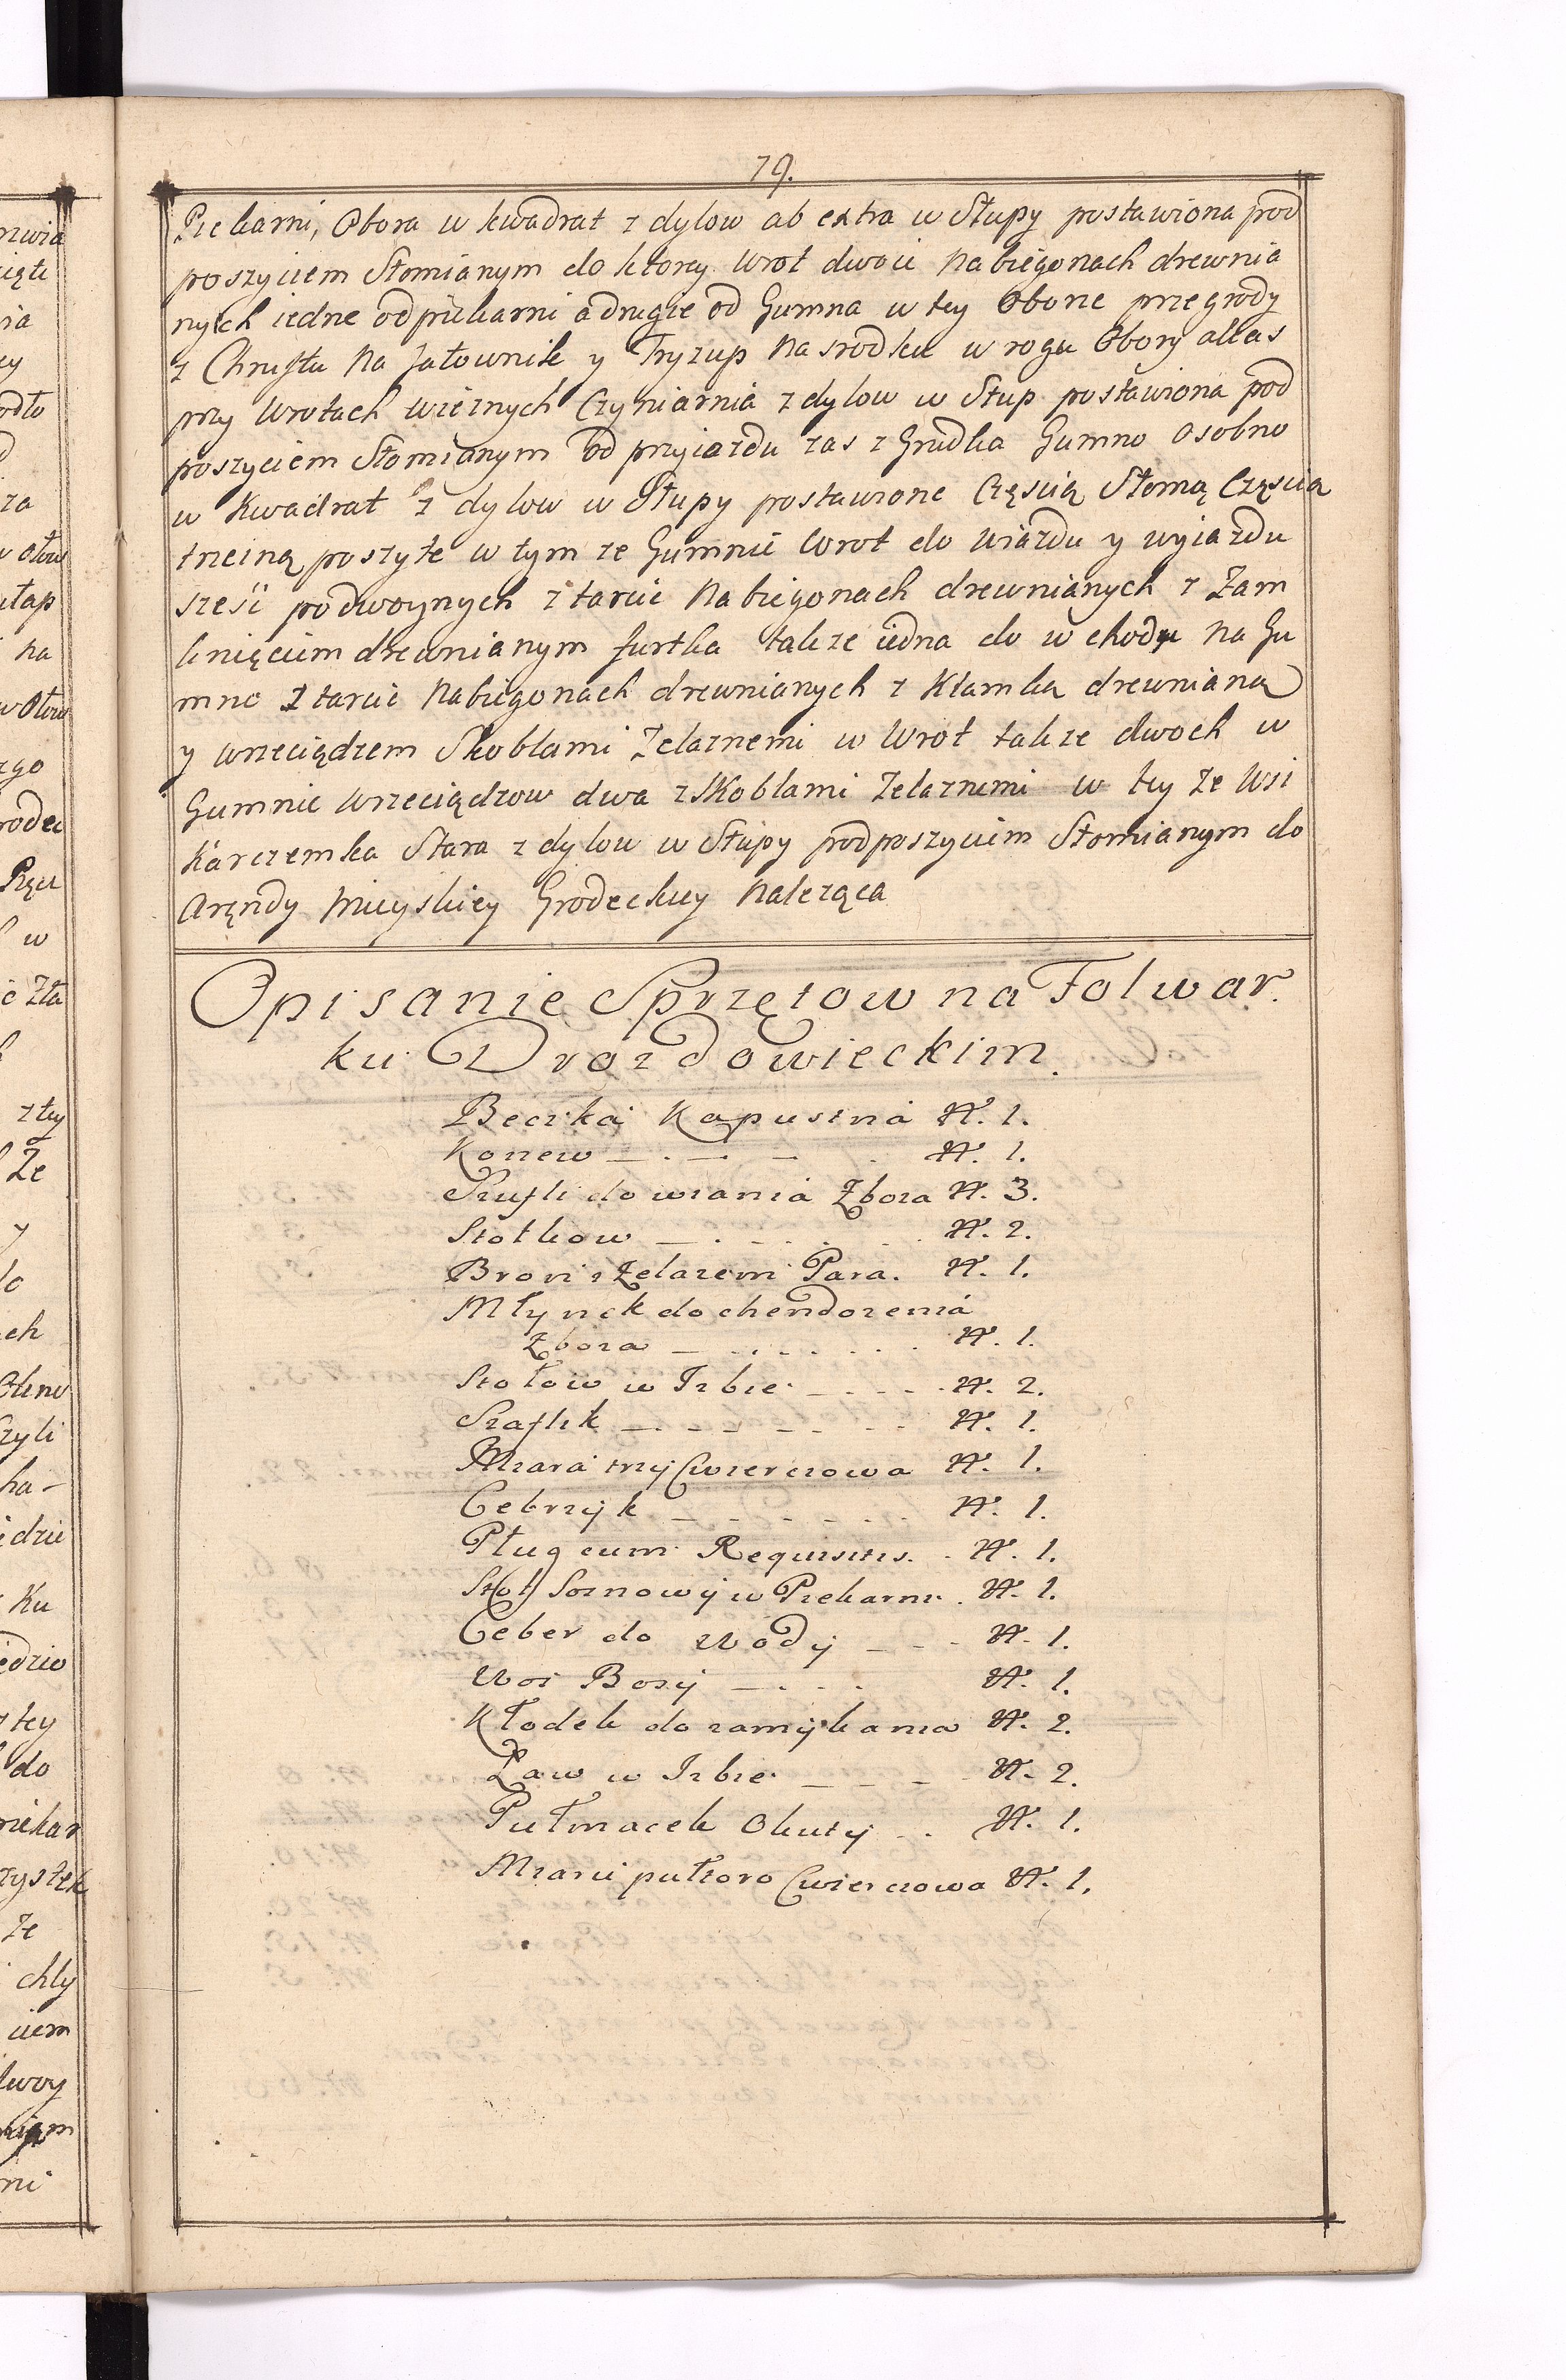 79.
Piekarni, Obora w kwadrat z dylow ab extra w Słupy postawiona pod
poszyciem Słomianym do ktorey Wrot dwoie na biegonach drewnia
nych iedne od piekarni a drugie od Gumna w tey Oborze przegrody
z Chrustu na Jałownik y Tryzup na srodku w rogu Obory allas
przy Wrotach wieznych Czyniarnia z dylow w Słup postawiona pod
poszyciem Słomianym od przyiazdu zas z Grudka Gumno osobno
w Kwadrat z dylow w Słupy postawione Częscią Słomą Częscią
trzciną poszyte w tym ze Gumnie Wrot do Wiazdu y wyiazdu
szesć podwoynych z tarcic na biegonach drewnianych z Zam
knięciem drewnianym furtka takze iedna do wchodu na Gu
mno z tarcic na biegonach drewnianych z Klamką drewnianą
y wrzeciądzem Skoblami Zelaznemi w Wrot takze dwoch w
Gumnie Wrzeciądzow dwa z Skoblami Zelaznemi w tey ze Wsi
Karczemka Stara z dylow w Słupy pod poszyciem Słomianym do
Arędy Mieyskiey Grodeckiey Należąca
Opisanie Sprzętow na Folwar.
ku Drozdowieckim.
Beczka Kapustna N. 1.
Konew N. 1.
Szufli do wiania Zboza N. 3.
Stołkow N. 2.
Bron z Zelazem Para. N. 1.
Młynek do chendozenia
Zboza N. 1.
Stołow w Izbie N. 2.
Szaflik N. 1.
Miara trzy Cwierciowa N. 1.
Cebrzyk N. 1.
Pług cum Requisitis. N. 1.
Stoł Sosnowy w Piekarni. N. 1.
Ceber do Wody N. 1.
Woz Bosy N. 1.
Kłodek do zamykania N. 2.
Ław w Izbie N. 2.
Pułmacek Okuty N. 1.
Miara pułtoro Cwierciowa N. 1.